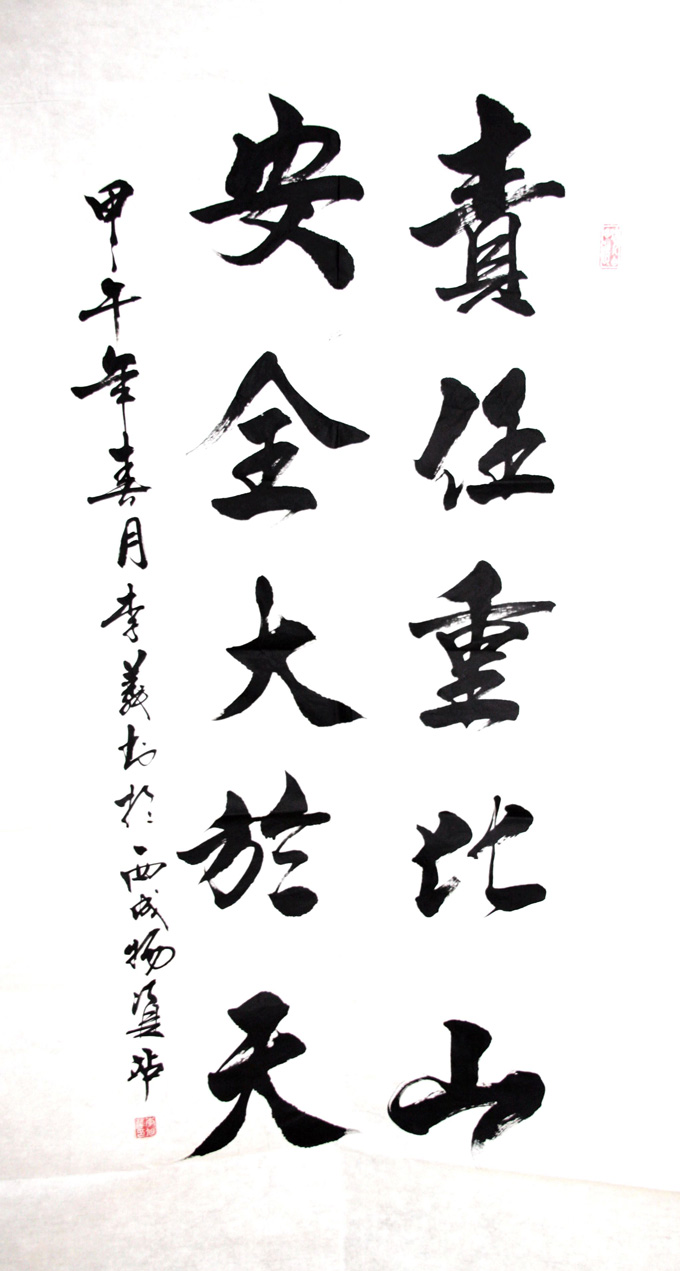 責任重比山
安全大於天
甲午年春月李義書於西成物資站